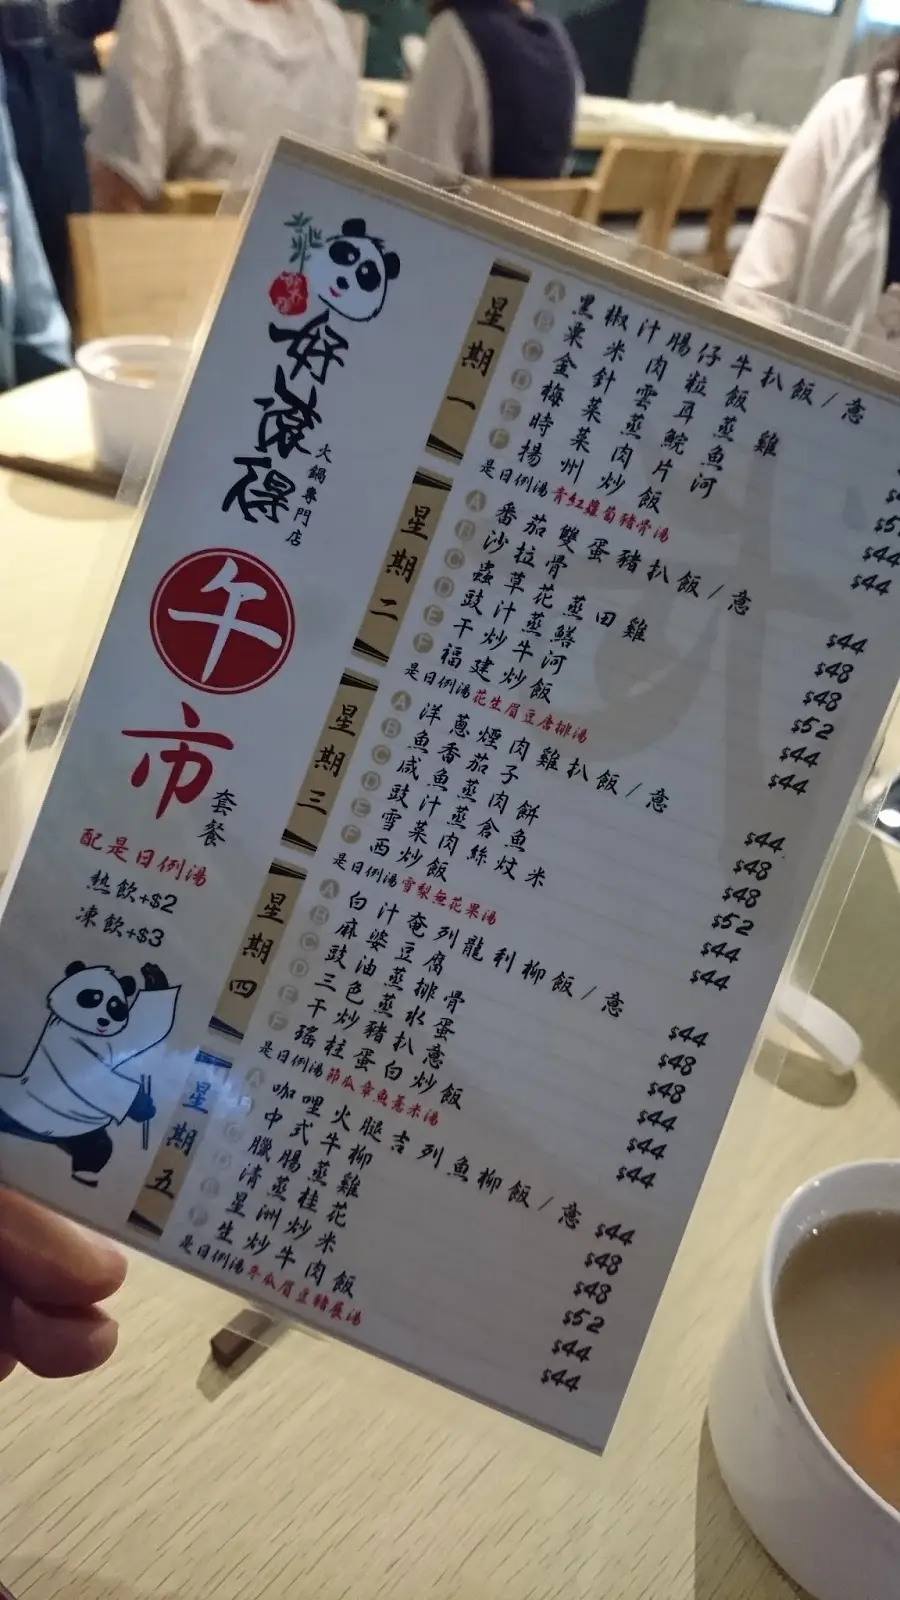 火鍋專門店
午市
套餐
配是日例湯
熱飲+$2
凍飲+$3
星期一
A 黑椒汁腸仔牛扒飯/意
B 粟米肉粒飯
C 金針雲耳蒸雞
D 梅菜蒸鯇魚
E 時菜肉片河
F 揚州炒飯
$44
$44
是日例湯 青紅蘿蔔豬骨湯
星期二
A 番茄雙蛋豬扒飯/意 $44
B 沙拉骨 $48
C 蟲草花蒸田雞 $48
D 豉汁蒸鱔 $52
E 干炒牛河 $44
F 福建炒飯 $44
是日例湯 花生眉豆唐排湯
星期三
A 洋蔥煙肉雞扒飯/意 $44
B 魚香茄子 $48
C 咸魚蒸肉餅 $48
D 豉汁蒸倉魚 $52
E 雪菜肉絲炆米 $44
F 西炒飯 $44
是日例湯 雪梨無花果湯
星期四
A 白汁奄列龍利柳飯/意 $44
B 麻婆豆腐 $48
C 豉油蒸排骨 $48
D 三色蒸水蛋 $44
E 干炒豬扒意 $44
F 瑤柱蛋白炒飯 $44
是日例湯 節瓜章魚薏米湯
星期五
A 咖哩火腿吉列魚柳飯/意 $44
中式牛柳 $48
臘腸蒸雞 $48
清蒸桂花 $52
星洲炒米 $44
F 生炒牛肉飯 $44
是日例湯 冬瓜眉豆豬展湯